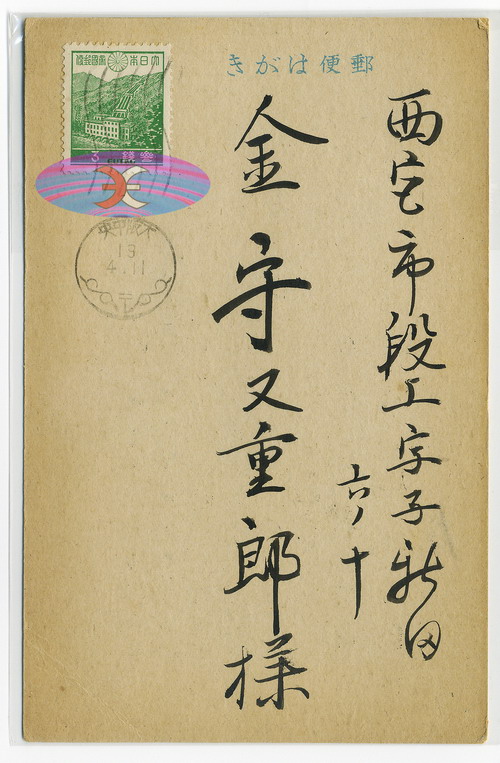 郵便はがき
西宮市段上字子新田
六ノ十
金守又重郎様
大日本帝國郵便
3
参錢
大阪中央
19
4.11